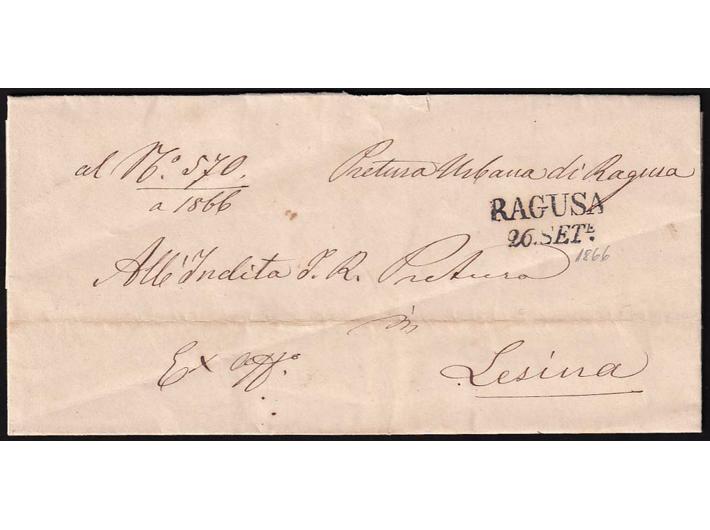 al N.º 570.
a 1866
Pretura Urbana di Ragusa
RAGUSA
26.SET.E
1866
All' Inclita I. R. Pretura
in
Ex offo.
Lesina